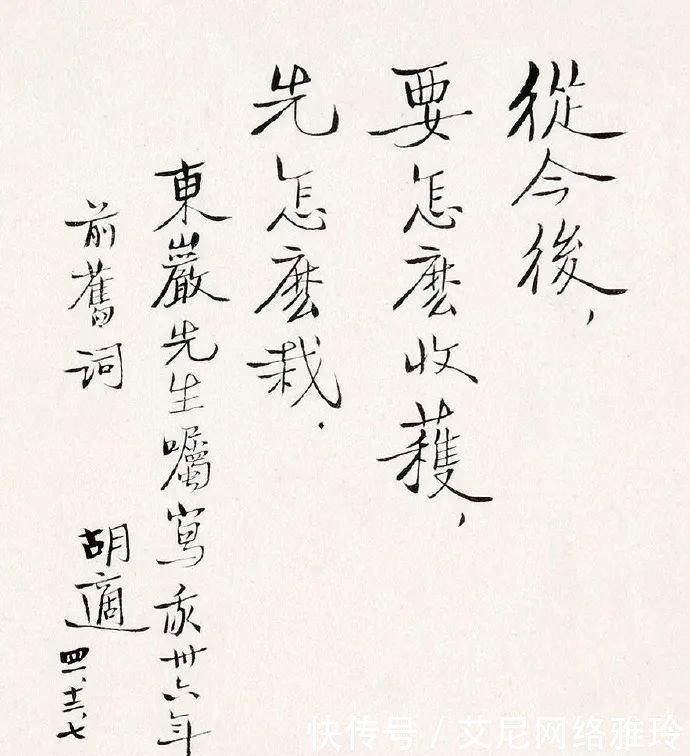 從今後，
要怎麼收穫，
先怎麼栽．
東巖先生囑寫我卅六年
前舊詞
胡適
四一、十二、七
快传号 / 艾尼网络雅玲